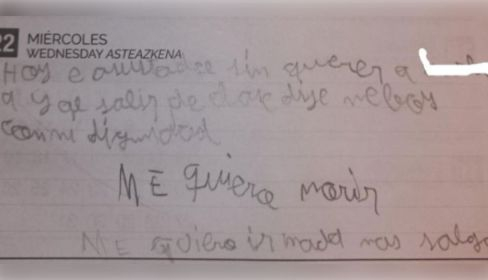 22 MIÉRCOLES
WEDNESDAY ASTEAZKENA
Hoy e sin querer a
a y al salir de clase dije me boy
con mi dignidad
ME quiero morir
ME quiero ir nada mas salga